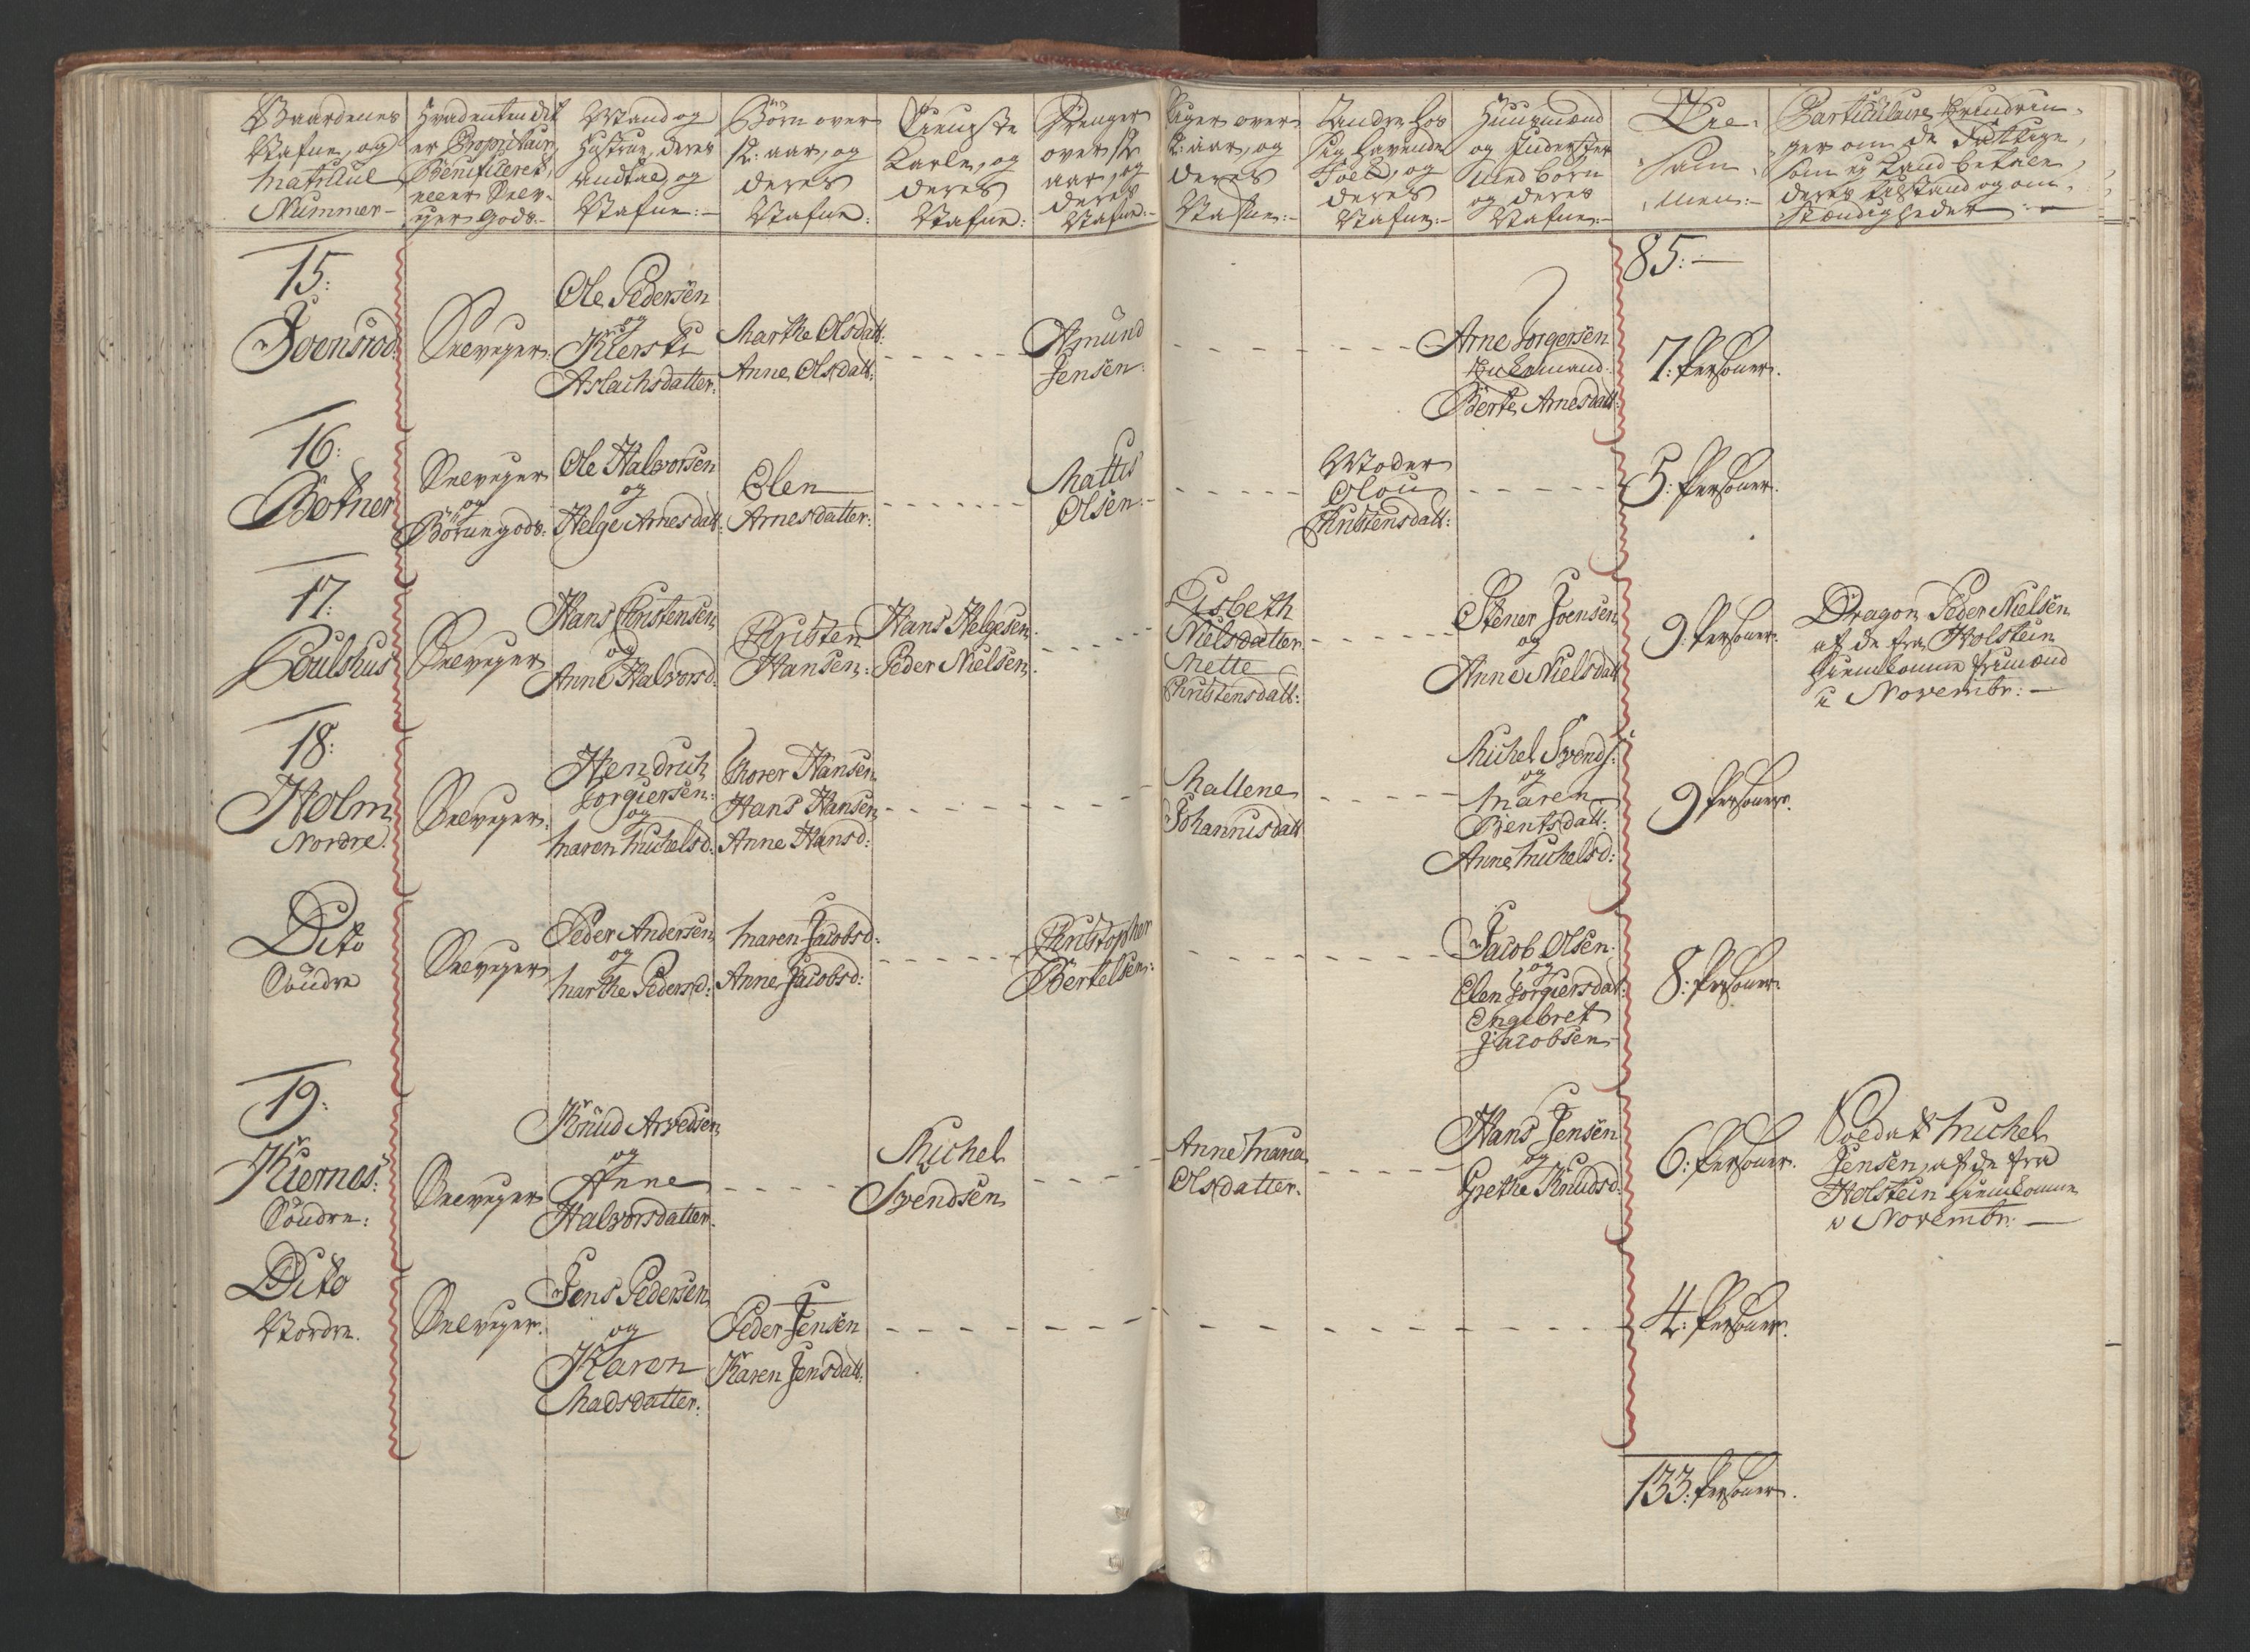 Gaardenes
Nafne, og
Matricul
Nummer
Hvad enten dit
er Propritair,
Benificeret,
eller Selv-
eyer Gods.
Mand og
Hustrue, deres
Andtal, og
Nafne:
Børn over
12: aar, og
deres
Nafne:
Tieneste
Karle, og
deres
Nafne:
Drenger
over 12
aar, og
deres
Nafne:
Piger over
12: aar, og
deres
Nafne:
Andre hos
sig havende
Folck, og
deres
Nafne:
Huusmænd
og Inderster
med børn
og deres
Nafne:
Tie-
Sam-
men:
Particulaire Erindrin-
ger om de Fattige,
som ey kand betale,
deres tilstand og om-
stændigheder:
85:
15:
Joensrod
Selveyer:
Ole Pedersen
og
Kiersti
Aslachsdatter:
Marthe Olsdatt:
Anne Olsdatt:
Asmund
Jensen:
Arne Torgersen
Huusmand:
Berte Arnesdatt:
7: Persohner.
16:
Botner
Selveyer
og
Børnegods:
Ole Halvorsen
og
Helge Arnesdatt:
Elen
Arnesdatter:
Mattis
Olsen:
Moder
Olou
Christensdatt:
5: Persohner.
17:
Poulshus
Selveyer
Hans Christensen
og
Anne Halvorsd:
Christen
Hansen:
Hans Helgesen
Peder Nielsen
Lisbeth
Nielsdatter
Mette
Christensdatt:
Stener Joensen
og
Anne Nielsdatt
9: Persohner.
Dragon Peder Nielsen
af de fra Holstein
hiemkomne frimænd
i Novembr:
18:
Holm
Nordre
Selveyer:
Hendrich
Torgiersen:
og
Maren Michelsd:
Thorer Hansen
Hans Hansen
Anne Hansd:
Mallene
Johannisdatt
Michel Svends:
og
Maren
Bentsdatt:
Anne Michelsd:
9 Persohner.
Dito
Søndre
Selveyer
Peder Andersen
og
Marthe Pedersd:
Maren Jacobsd:
Anne Jacobsd:
Christopher
Bertelsen:
Jacob Olsen
og
Elen Torgiersdat:
Engebret
Jacobsen
8: Persohner.
19:
Kiernes:
Søndre:
Selveyer
Knud Arvedsen
og
Anne
Halvorsdatter.
Michel
Svendsen
Anne Maria
Olsdatter.
Hans Jensen
og
Grethe Knudsd:
6: Persohner.
Soldat Michel
Jensen, af de fra
Holstein hiemkomne
i Novembr:
Dito
Nordre.
Selveyer.
Jens Pedersen
og
Karen
Madsdatter:
Peder Jensen
Karen Jensdatt:
4: Persohner.
133: Persohner.